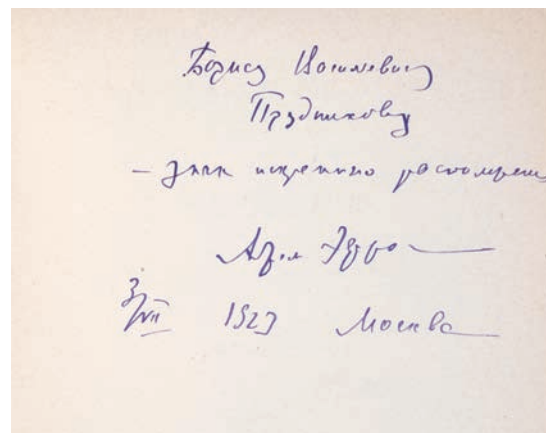 Борису Васильевичу
Прудникову
— знак искреннего расположения
Абрам Эфрос
3/VII 1923 Москва